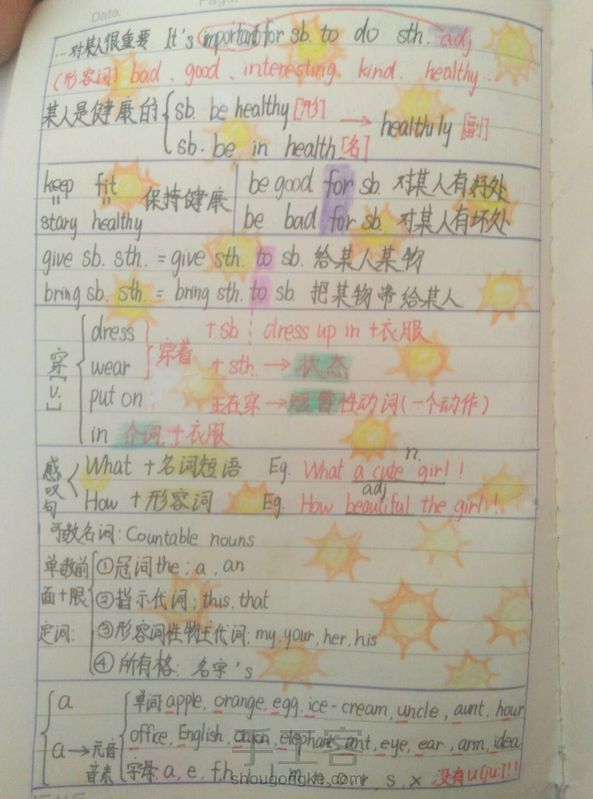 Date.
Page.
...对某人很重要 It's important for sb. to do sth. adj
(形容词) bad、good、interesting、kind、healthy...
某人是健康的 sb. be healthy [形] → healthily [副]
sb. be in health [名]
keep fit 保持健康
stary healthy
be good for sb. 对某人有好处
be bad for sb. 对某人有坏处
give sb. sth. = give sth. to sb. 给某人某物
bring sb. sth. = bring sth. to sb. 把某物带给某人
穿 [v.]
dress 穿着 + sb dress up in + 衣服
wear + sth. → 状态
put on 正在穿 → 短暂性动词(一个动作)
in 介词 + 衣服
感叹句
What + 名词短语 Eg. What a cute girl! n.
adj
How + 形容词 Eg. How beautiful the girl!
可数名词: Countable nouns
单数前面+限定词:
①冠词 the; a, an
②指示代词; this, that
③形容词性物主代词: my, your, her, his
④所有格: 名字's
a
a → 元音音素
单词 apple, orange, egg, ice-cream, uncle, aunt, hour
office, English, onion, elephant, ant, eye, ear, arm, idea
字母: a, e, f, h, i, l, m, n, o, r, s, x 没有u[ju:]!!!
手工客
shougongke.com